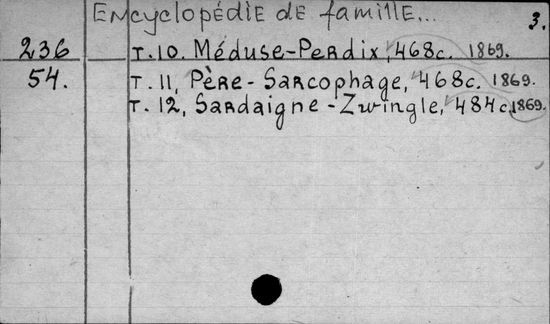 Encyclopédie de famille... 3.
236 T. 10. Méduse-Perdix, 468c. 1869.
54. T. 11, Père-Sarcophage, 468c. 1869.
T. 12, Sardaigne-Zwingle, 484c. 1869.